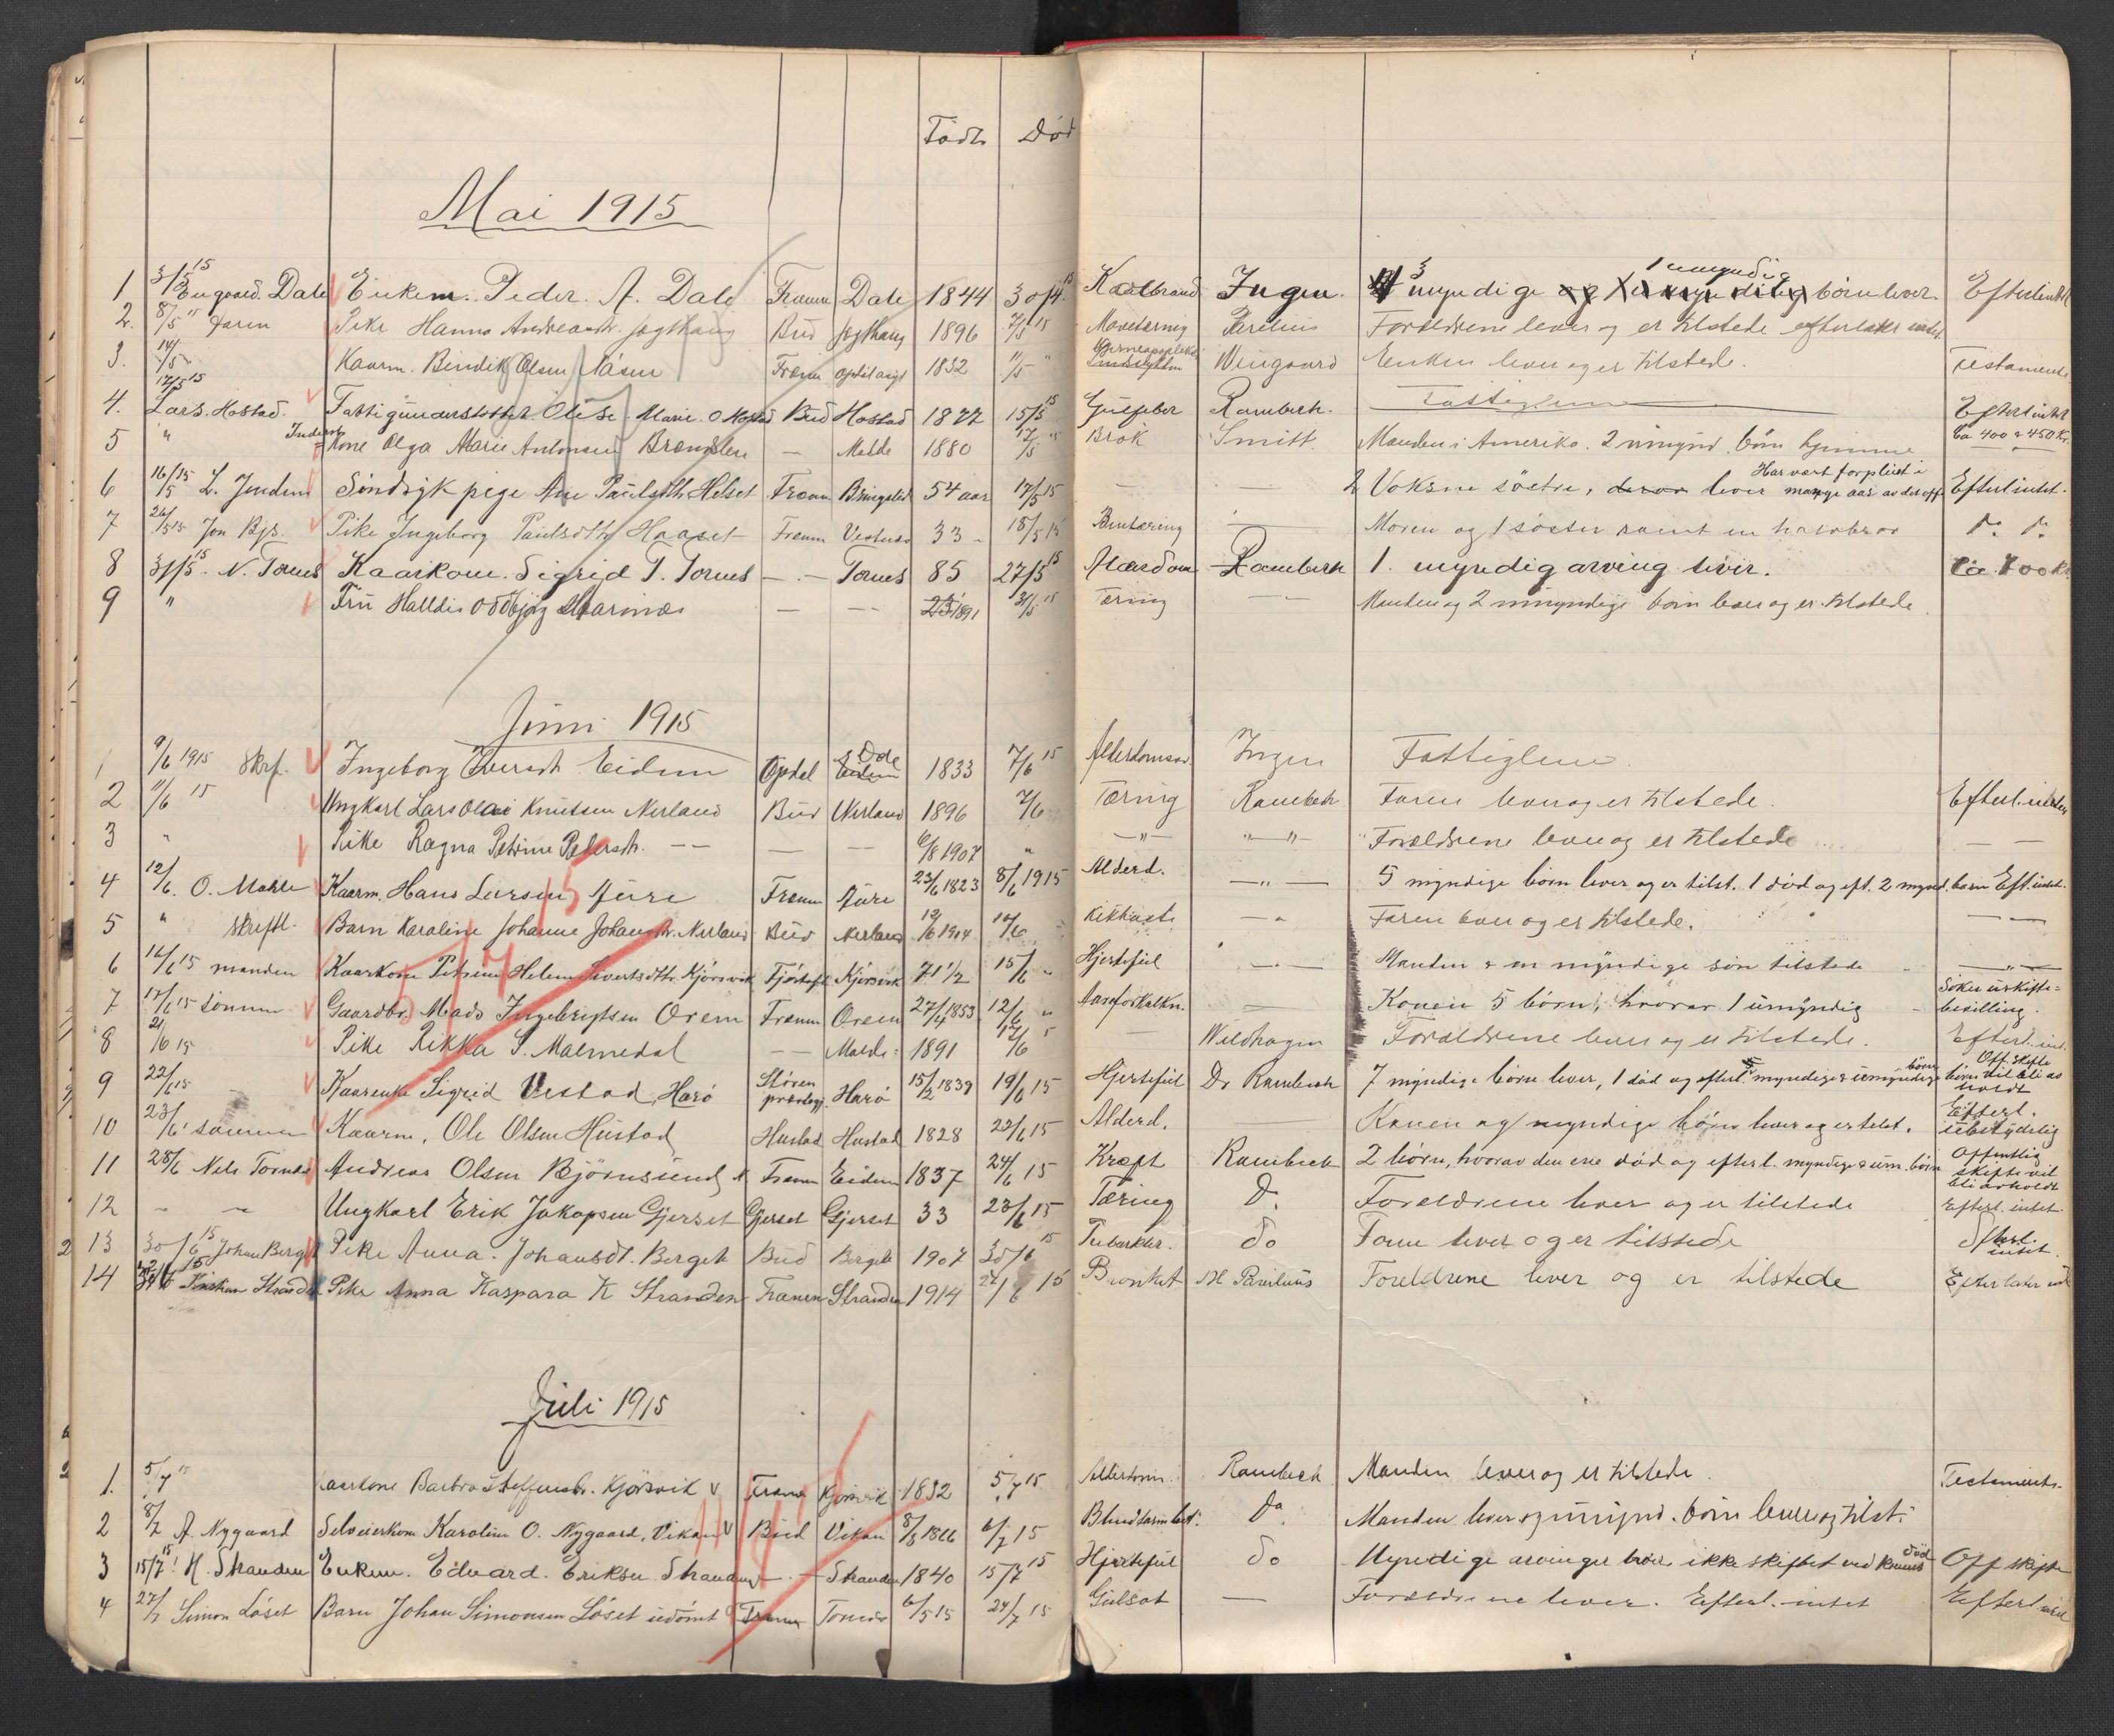 Født Død
Mai 1915
1 3/5 15 Engvard Dale Enkem. Peder A. Dale Frænen Dale 1844 30/4 15 Koldbrand Ingen. 3 myndige 1 umyndig børn lever. Efterl. intet
2. 8/5 15 Faren Pike Hanna Andreasdtr. Jegthaug Bud Jegthaug 1896 7/5 15 Mavetæring Parelius Forældrene lever og er tilstede efterlater intet
3. 14/5 Kaarm. Bendik Olsen Aasen Frænen 1832 11/5 " Wingaard Enken lever og er tilstede. Testamente
4. 17/5 15 Lars Hostad. Fattigunderstøttet Oluse Marie O Hostad Bud Hostad 1877 15/5 15 Rambech. Fattiglem Efterl intet
5 " Kone Olga Marie Antonsen — Molde 1880 17/5 " Brok Smitt Manden i Amerika. 2 umynd. børn hjemme ca 400 a 450 Kr.
6 16/5 15 L. Jenden Sindsyk pige Ane Paulsdtr. Helset Frænen Bringslid 54 aar 17/5 15 — — 2 Voksne søstre, lever Har vært forpleiet i mange aar av det off. Efterl intet.
7 26/5 15 Jon Bjs. Pike Ingeborg Paulsdtr. Haaset Frænen Vestnes 33 - 18/5 15 Bentæring — Moren og 1 søster samt en halvbror do. do.
8 31/5 15 N. Tornes Kaarkone. Sigrid T. Tornes — . — Tornes 85 27/5 15 Alderdom Rambech 1. myndig arving lever. Ca. 700 Kr.
9 " Fru Halldis Oddbjørg — — 1891 2/5 15 Tæring — Manden og 2 umyndige børn lever og er tilstede.
Juni 1915
1 9/6 1915 Skrf. Ingeborg Iversdt. Eidem Opdøl Eidem 1833 7/6 15 Alderdomssv. Ingen Fattiglem.
2 11/6 15 Ungkarl Lars Olai Knutsen Nerland Bud Nerland 1896 7/6 Tæring Rambech Faren lever og er tilstede. Efterl. intet
3 " Pike Ragna Petrine Petersdt. — — — — 6/8 1907 " — " — " — " Forældrene lever og er tilstede — —
4 12/6. O. Male Kaarm. Hans Larsen Aure Frænen Aure 23/6 1823 8/6 1915 Alderd. — " — 5 myndige børn lever og er tilst. 1 død og eft. 2 mynd. børn Eft. intet.
5 " Skriftl. Barn Karoline Johanne Johansdtr. Nerland Bud Nerland 12/6 1914 10/6 Kikhoste — " Faren lever og er tilstede. — —
6 16/6 15 manden Kaarkone Petrine Helene Sivertsdtr. Kjørsvik Fjørtoft Kjørsvik 71 1/2 15/6 " Hjertefeil — " — Manden & en myndige søn tilstede — " —
7 17/6 15 sønnen Gaardbr. Mads Ingebrigtsen Orem Frænen Orem 27/4 1853 12/6 " Aareforkalkn. — Konen 5 børn, hvorav 1 umyndig Søker uskiftebevilling.
8 21/6 15 Pike Rikka S. Malmedal — — Malme 1891 17/6 5 — Weidhagen Forældrene lever og er tilstede. Efterl. int.
9 22/6 15 Kaarenke Sigrid Vestad, Harø Harø 15/2 1839 19/6 15 Hjertefeil Dr Rambech 7 myndige børn lever, 1 død og efterl. 5 myndige & umyndige børn Off. skifte vil bli avholdt
10 23/6 sønnen Kaarm. Ole Olsen Hustad Hustad Hustad 1828 22/6 15 Alderd. Konen og myndige børn lever og er tilst. Efterl. ubetydelig
11 28/6 Nels Tornes Andreas Olsen Bjørnsund Frænen Eidem 1837 24/6 15 Kræft Rambech 2 børn, hvorav den ene død og efterl. myndige & um. børn Offentlig skifte vil bli avholdt
12 — — Ungkarl Erik Jakopsen Gjerset Gjerset Gjerset 33 23/6 15 Tæring D. Forældrene lever og er tilstede Efterl. intet
13 30/6 15 Johan Berget Pike Anna. Johansdt. Berget Bud Berget 1907 30/6 15 Tuberkler. do Faren lever og er tilstede Efterl. intet.
14 Kristian Stranden Pike Anna Kaspara K Stranden Frænen Stranden 1914 27/6 15 Bronkit M Parelius Foreldrene lever og er tilstede Efterlater intet
Juli 1915
1. 5/7 15 Kaarkone Barbro Steffensdt. Kjørsvik v Frænen Kjørsvik 1832 5/7 15 Alderdom. Rambech Manden lever og er tilstede. Testament.
2 8/7 A. Nygaard Selveierkone Karoline O. Nygaard, Vikan v Bud Vikan 8/8 1866 6/7 15 Blindtarmbet. Do. Manden lever og umynd. børn lever og tilst.
3 15/7 15 H. Stranden Enkem. Edvard. Eriksen Stranden — . — Stranden 1840 15/7 15 Hjertefeil do Myndige arvinger ikke skiftet ved Konens død Off skifte
4 27/7 Simon Løset Barn Johan Simonsen Løset udømt Frænen Tornes 6/5 15 24/7 15 Gulsot — Forældrene lever. Efterl. intet Efterl intet